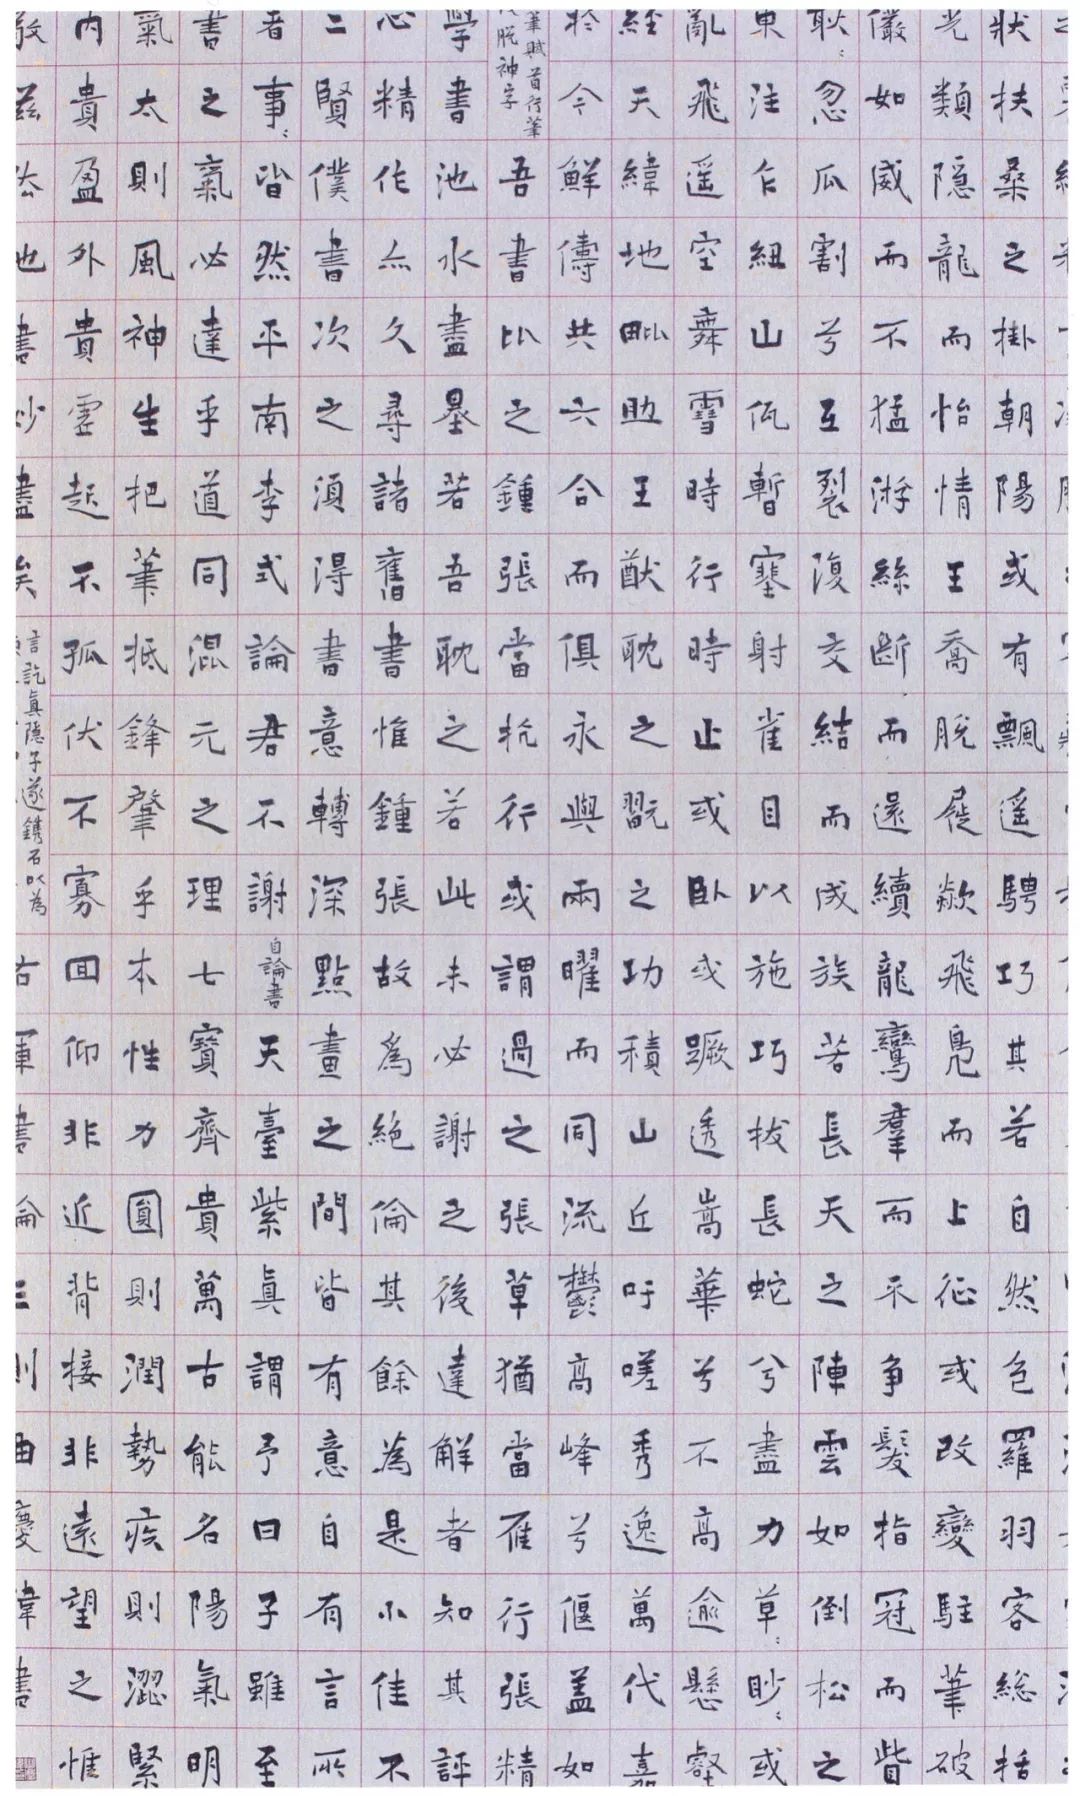 狀扶桑之掛朝陽或有飄遥騁巧其若自然包羅羽客総括
光類隠龍而怡情王喬脱屣欻飛鳧而上征或改變駐筆破
儼如威而不猛游絲斷而還續龍鸞羣而不争髮指冠而眥
耿〻忽瓜割兮互裂復交結而成族若長天之陣雲如倒松之
東注乍紐山暫塞射雀目以施巧拔長蛇兮盡力草〻眇〻或
亂飛遥空舞雪時行時止或卧或蹶透嵩華兮不高逾懸壑
經天緯地毗助王猷耽之翫之功積山丘吁嗟秀逸萬代嘉
於今鮮儔共六合而俱永與兩曜而同流鬱高峰兮偃蓋如
筆賦首行筆
脱神字
吾書比之鍾張當抗行或謂過之張草猶當雁行張精
學書池水盡墨若吾耽之若此未必謝之後達解者知其評
心精作亦久尋諸舊書惟鍾張故為絶倫其餘為是小佳不
二賢僕書次之湏得書意轉深點畫之間皆有意自有言所
者事〻皆然平南李式論君不謝自論書天臺紫真謂予曰子雖至
書之氣必達乎道同混元之理七寳齊貴萬古能名陽氣明
氣太則風神生把筆抵鋒肇乎本性力圓則潤勢疾則澀緊
内貴盈外貴虛起不孤伏不寡回仰非近背接非遠望之惟
敬兹法也書妙盡矣
言訖真隠子遂鐫石以為
右軍書論三則